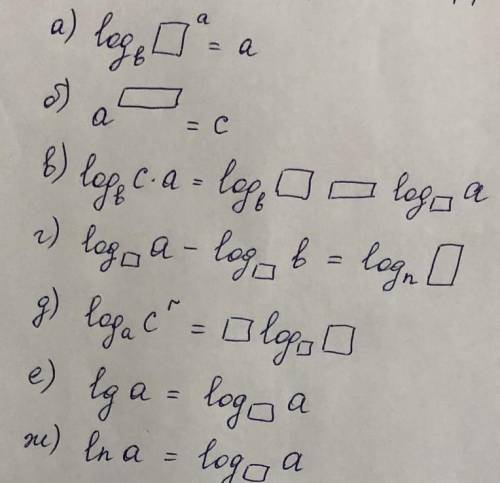 а) log_в □^a = a
б) a^□ = c
в) log_в c · a = log_в □ □ log_□ a
г) log_□ a - log_□ в = log_n □
д) log_a c^r = □ log_□ □
е) lg a = log_□ a
ж) ln a = log_□ a